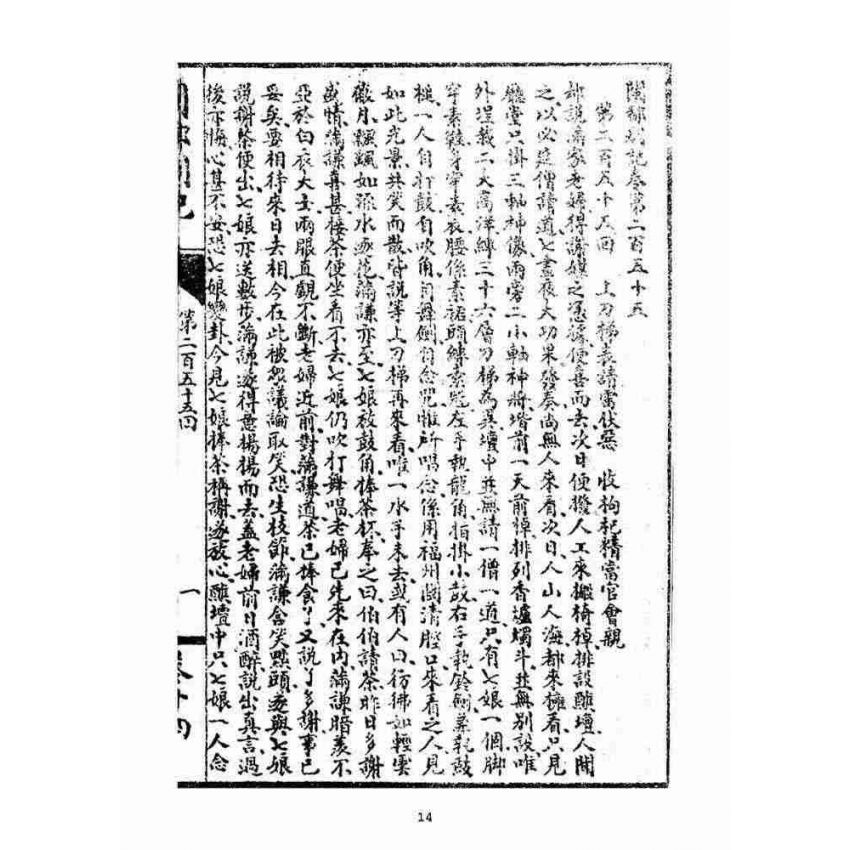 閩都別記卷第二百五十五
第二百五十五回 上刀梯表請雷伏惡 收枸杞精當官會親
却說蕭家老婦得謝媒之憑據便喜而去次日便撥人工來搬椅棹排設醮壇人聞
之以必延僧請道七晝夜大功果發奏尚無人來看次日人山人海都來擁看只見
廳堂只掛三軸神像兩旁二小軸神將堦前一天前棹排列香爐燭斗並無別設唯
外埕栽二大高洋縛三十六層刀梯為異壇中並無請一僧一道只有七娘一個脚
穿素鞋身穿素衣腰係素裙頭縛素冠左手執龍角指掛小鼓右手執鈴劍兼執鼓
槌一人自打鼓自吹角自舞劍自念咒惟所唱念係用福州國清腔口來看之人見
如此光景共笑而散皆說等上刀梯再來看唯一水手未去或有人曰彷彿如輕雲
蔽月飄飄如孫水逐花蒲謙亦至七娘放鼓角捧茶杯奉之曰伯伯請茶昨日多謝
盛情蒲謙喜甚接茶便坐看不去七娘仍吹打舞唱老婦已先來在內蒲謙暗羨不
亞於白衣大士兩眼直覷不斷老婦近前對蒲謙道茶已捧食了又說了多謝事已
妥矣要相待來日去相今在此被眾議論取笑恐生枝節蒲謙含笑點頭遂與七娘
說謝茶便出七娘亦送數步蒲謙遂得意揚揚而去蓋老婦前日酒醉說出真言過
後亦悔心甚不安恐七娘變卦今見七娘捧茶稱謝遂放心醮壇中只七娘一人念
閩都別記
第二百五十五回
一
卷十四
14